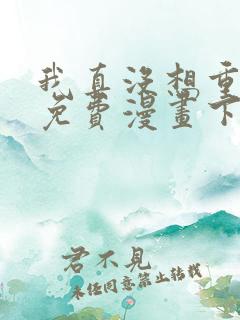 我真没想重
免费漫画下
君不见
未经同意禁止转载